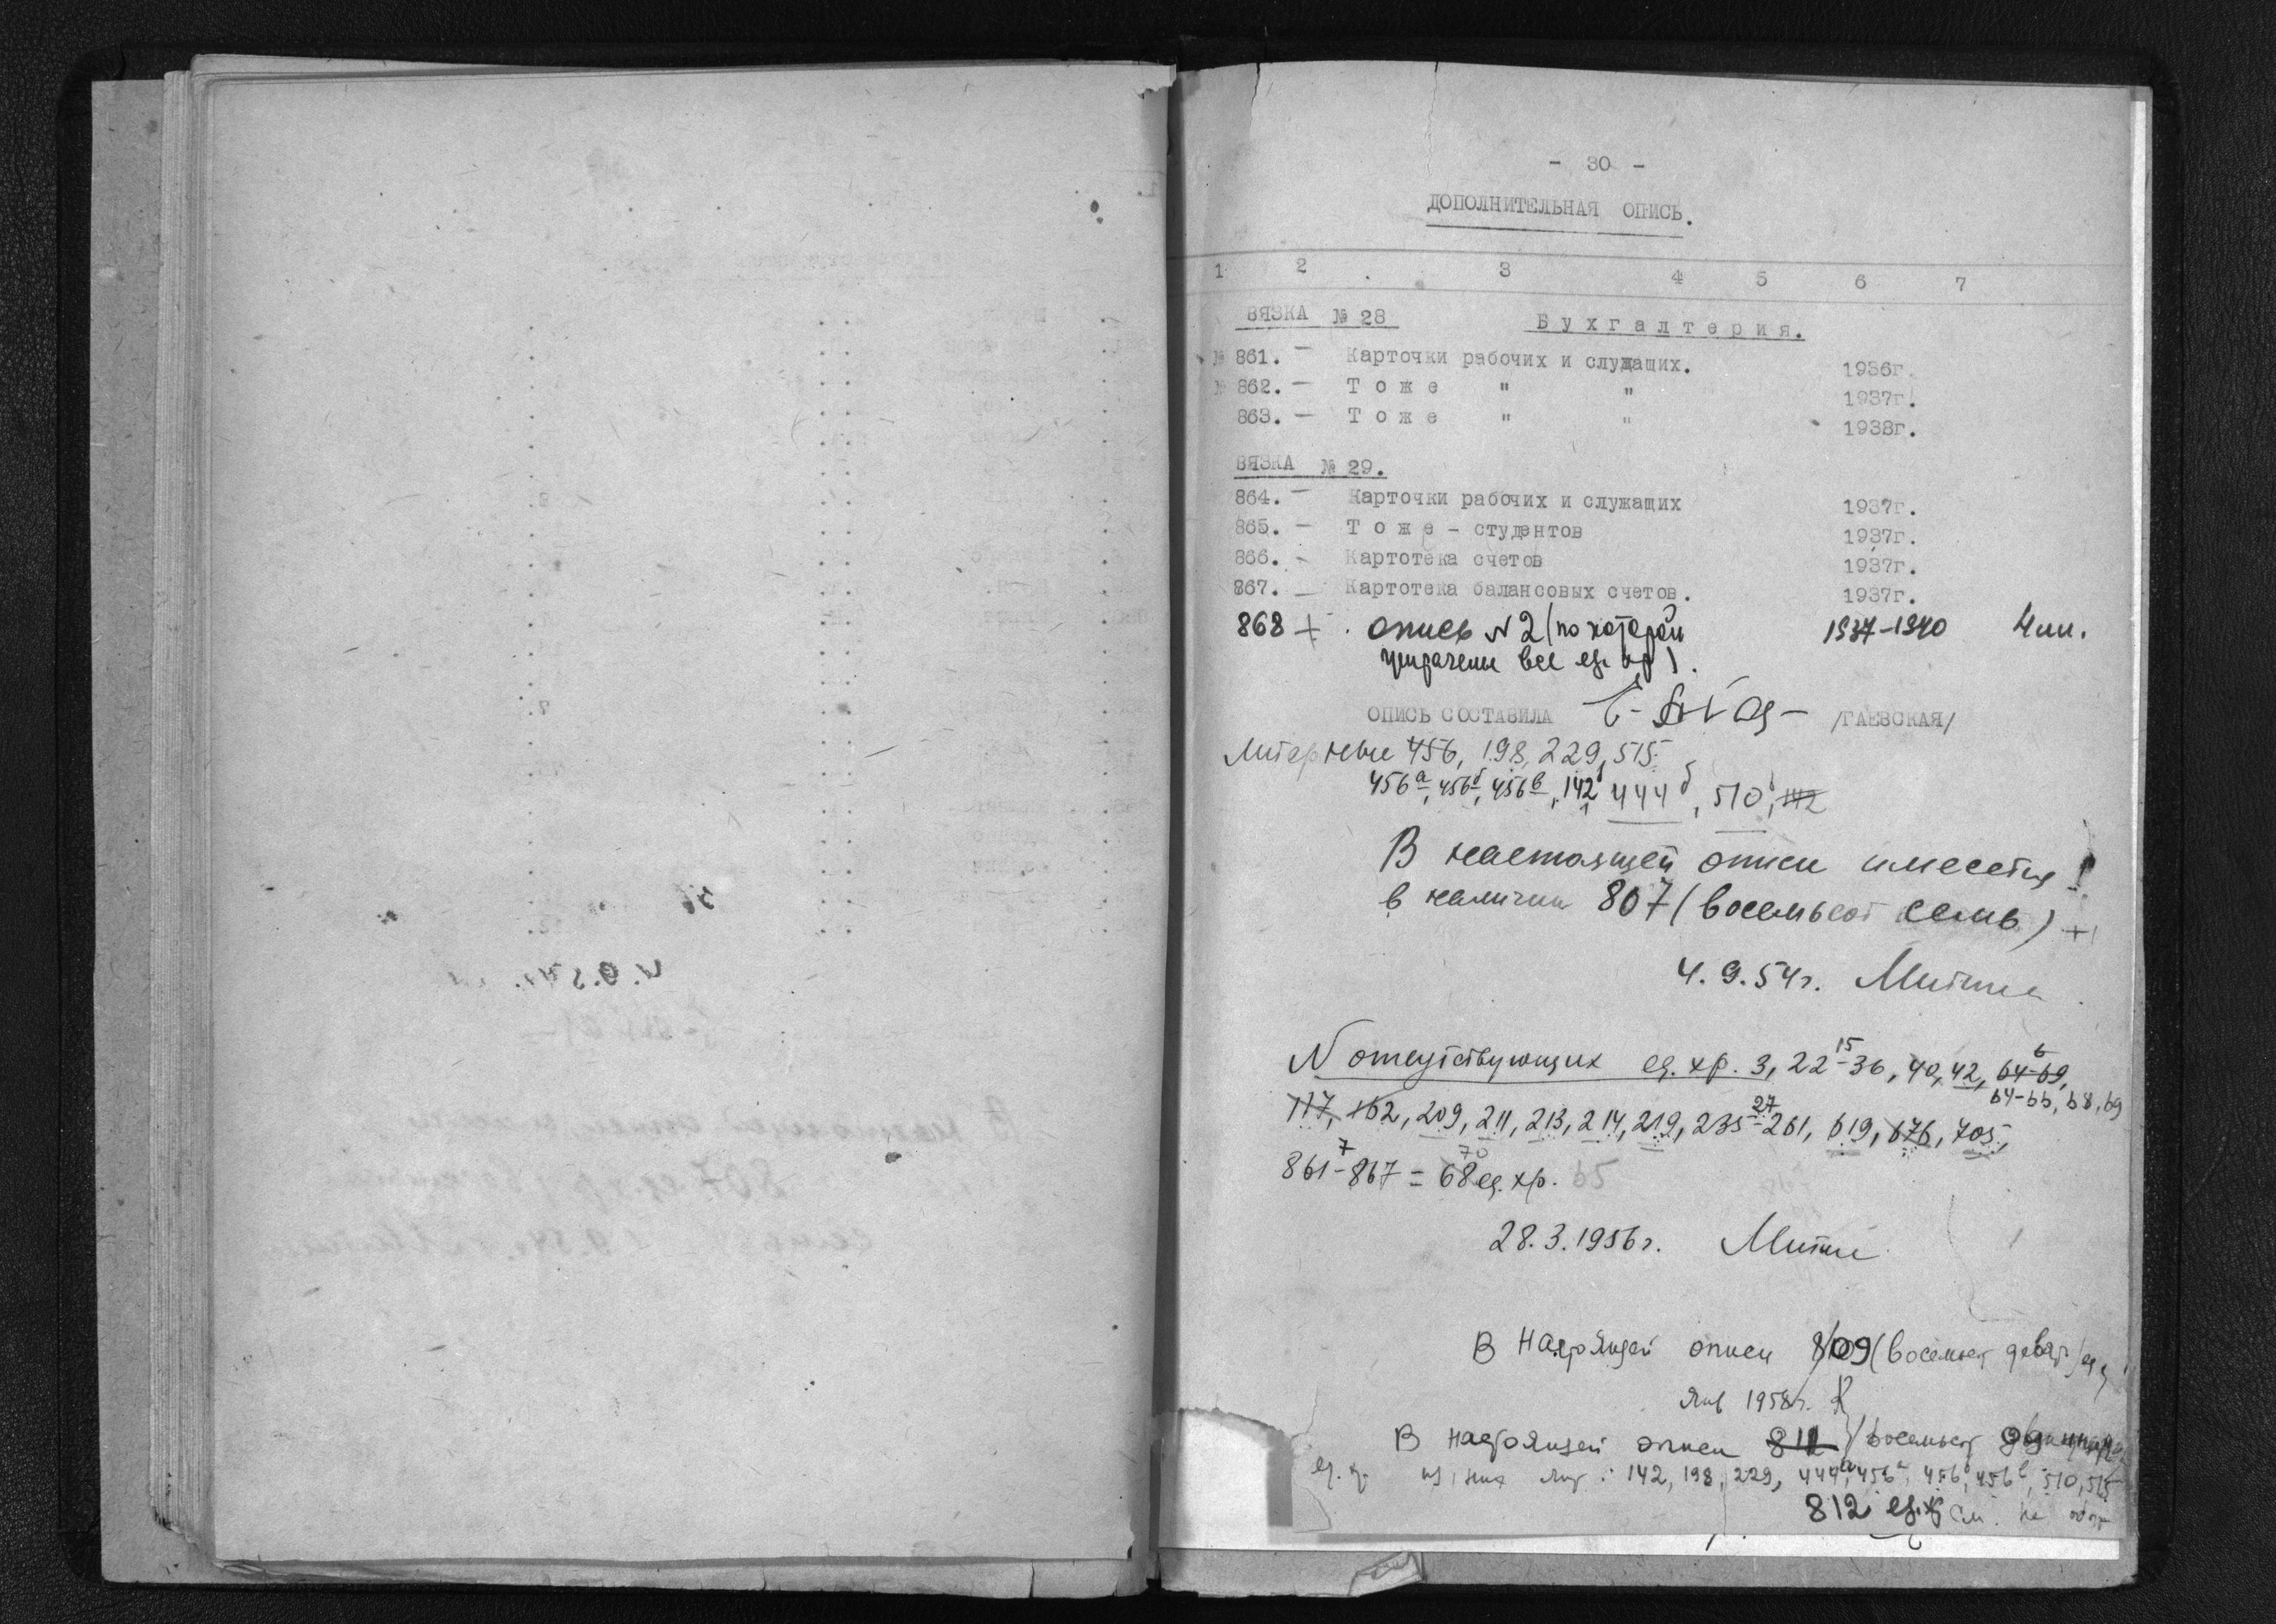 - 30 -
ДОПОЛНИТЕЛЬНАЯ ОПИСЬ.
1 2 3 4 5 6 7
ВЯЗКА № 28 Бухгалтерия.
№ 861. — Карточки рабочих и служащих. 1936г.
№ 862. — Тоже " " 1937г.
863. — Тоже " " 1938г.
ВЯЗКА № 29.
864. — Карточки рабочих и служащих 1937г.
865. — Тоже - студентов 1937г.
866. - Картотека счетов 1937г.
867. — Картотека балансовых счетов. 1937г.
868 + опись N 2 (по которой 1937-1940 4 лл.
утрачены все ед. хр).
ОПИСЬ СОСТАВИЛА /ГАЕВСКАЯ/
Литерные 456, 198, 229, 515
456а, 456б, 456в, 142, 444б, 510, 142
В настоящей описи имеется
в наличии 807 (восемьсот семь) +1
4.9.54г. Митина
N отсутствующих ед. хр. 3, 22-36, 40, 42, 64-69,
15 6
64-66, 68, 69
117, 162, 209, 211, 213, 214, 219, 235-261, 619, 676, 705,
27
861-867 = 68 ед. хр. 65
7 70
28.3.1956г. Митин
В настоящей описи 809 (восемьсот девять) ед
Янв 1958г.
В настоящей описи 812 (восемьсот двенадцать)
ед. х. из них лит: 142, 198, 229, 444а, 456а, 456б, 456в, 510, 515
812 ед. хр см. на обор